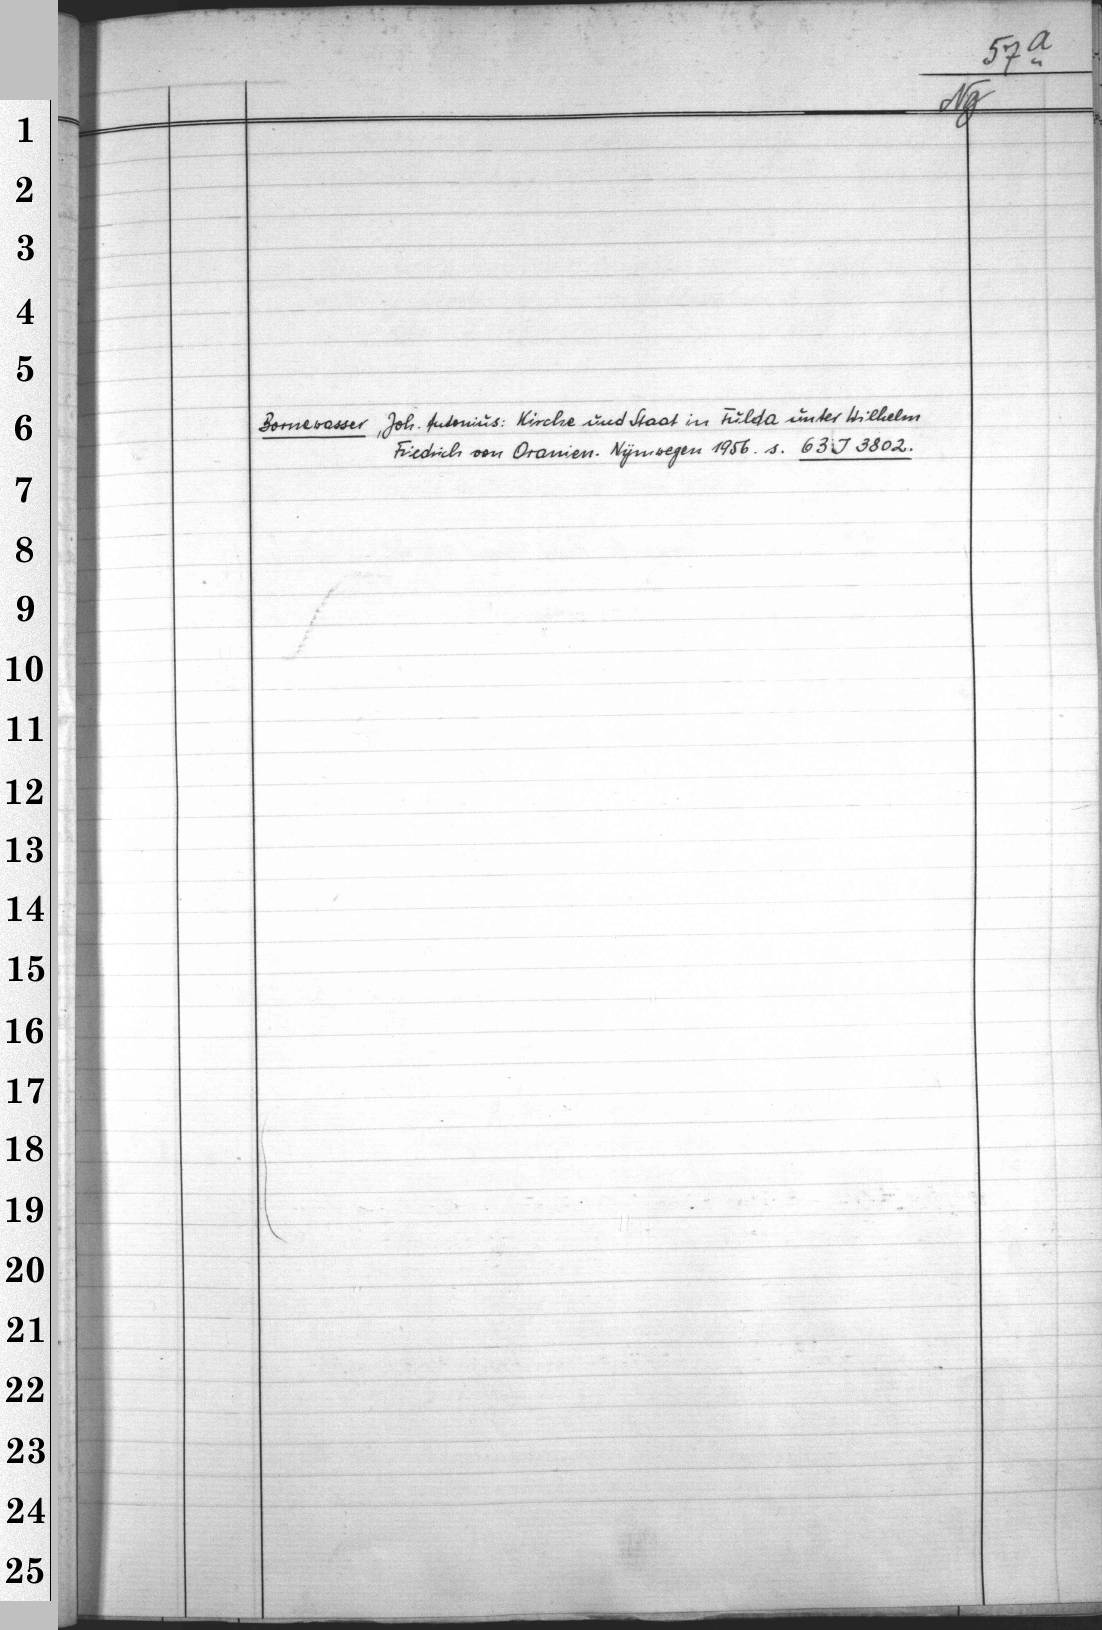 57 a
Ng
1
2
3
4
5
6
Bornewasser, Joh. Antonius: Kirche und Staat in Fulda unter Wilhelm
Friedrich von Oranien. Nijmwegen 1956. s. 63 J 3802.
7
8
9
10
11
12
13
14
15
16
17
18
19
20
21
22
23
24
25